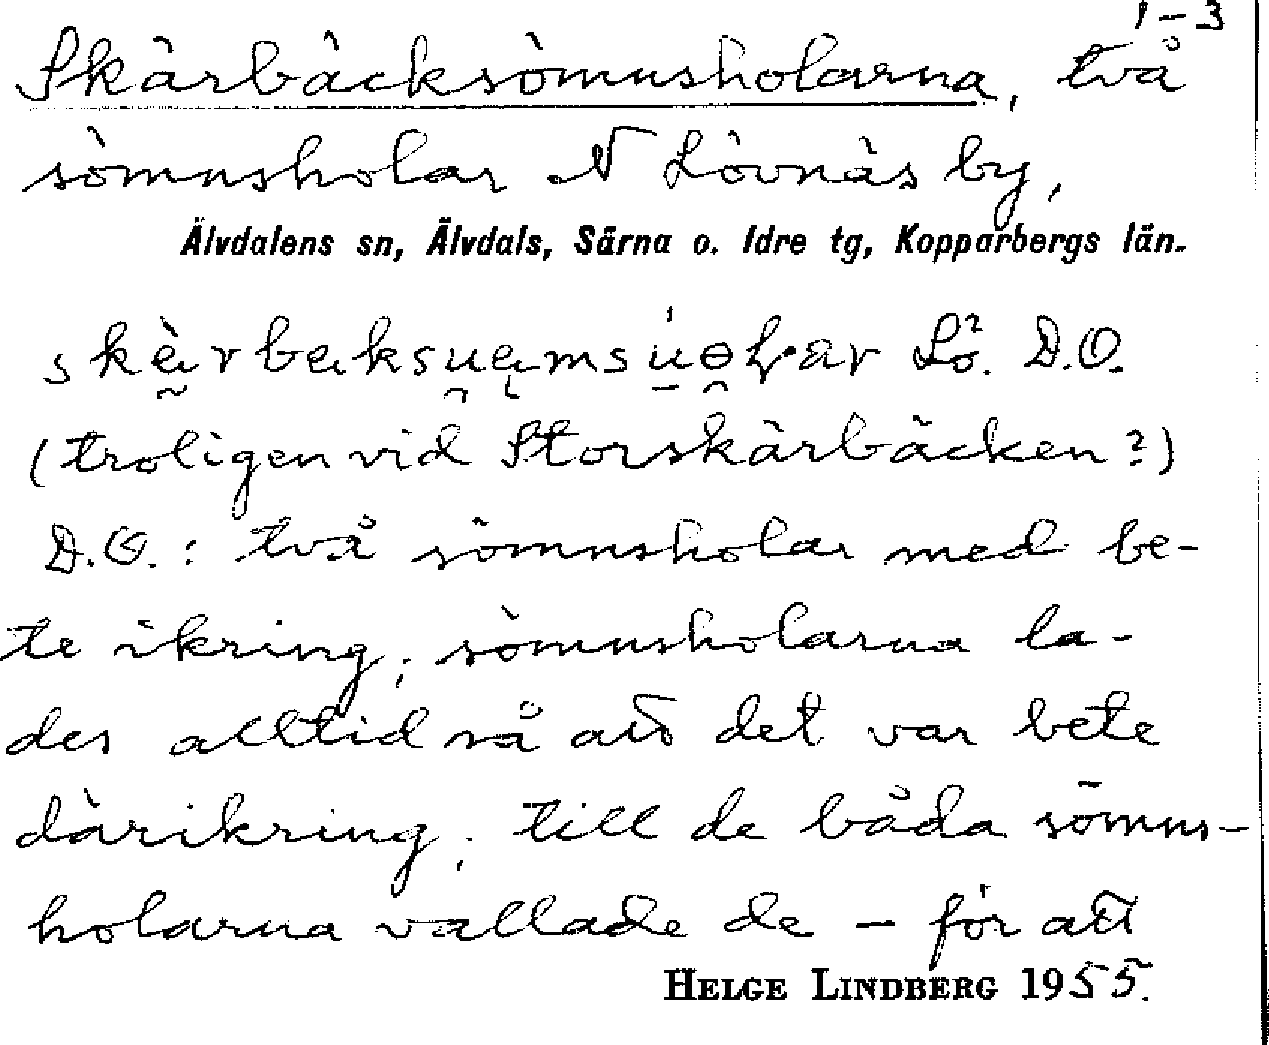 1-3
Skärbäcksömnsholarna, två
sömnsholar N Lövnäs by,
Älvdalens sn, Älvdals, Särna o. Idre tg, Kopparbergs län.
Lö. D.O.
(troligen vid Storskärbäcken?)
D.O.: två sömnsholar med be-
te ikring; sömnsholarna la-
des alltid så att det var bete
därikring; till de båda sömns-
holarna vallade de - för att
HELGE LINDBERG 1955.